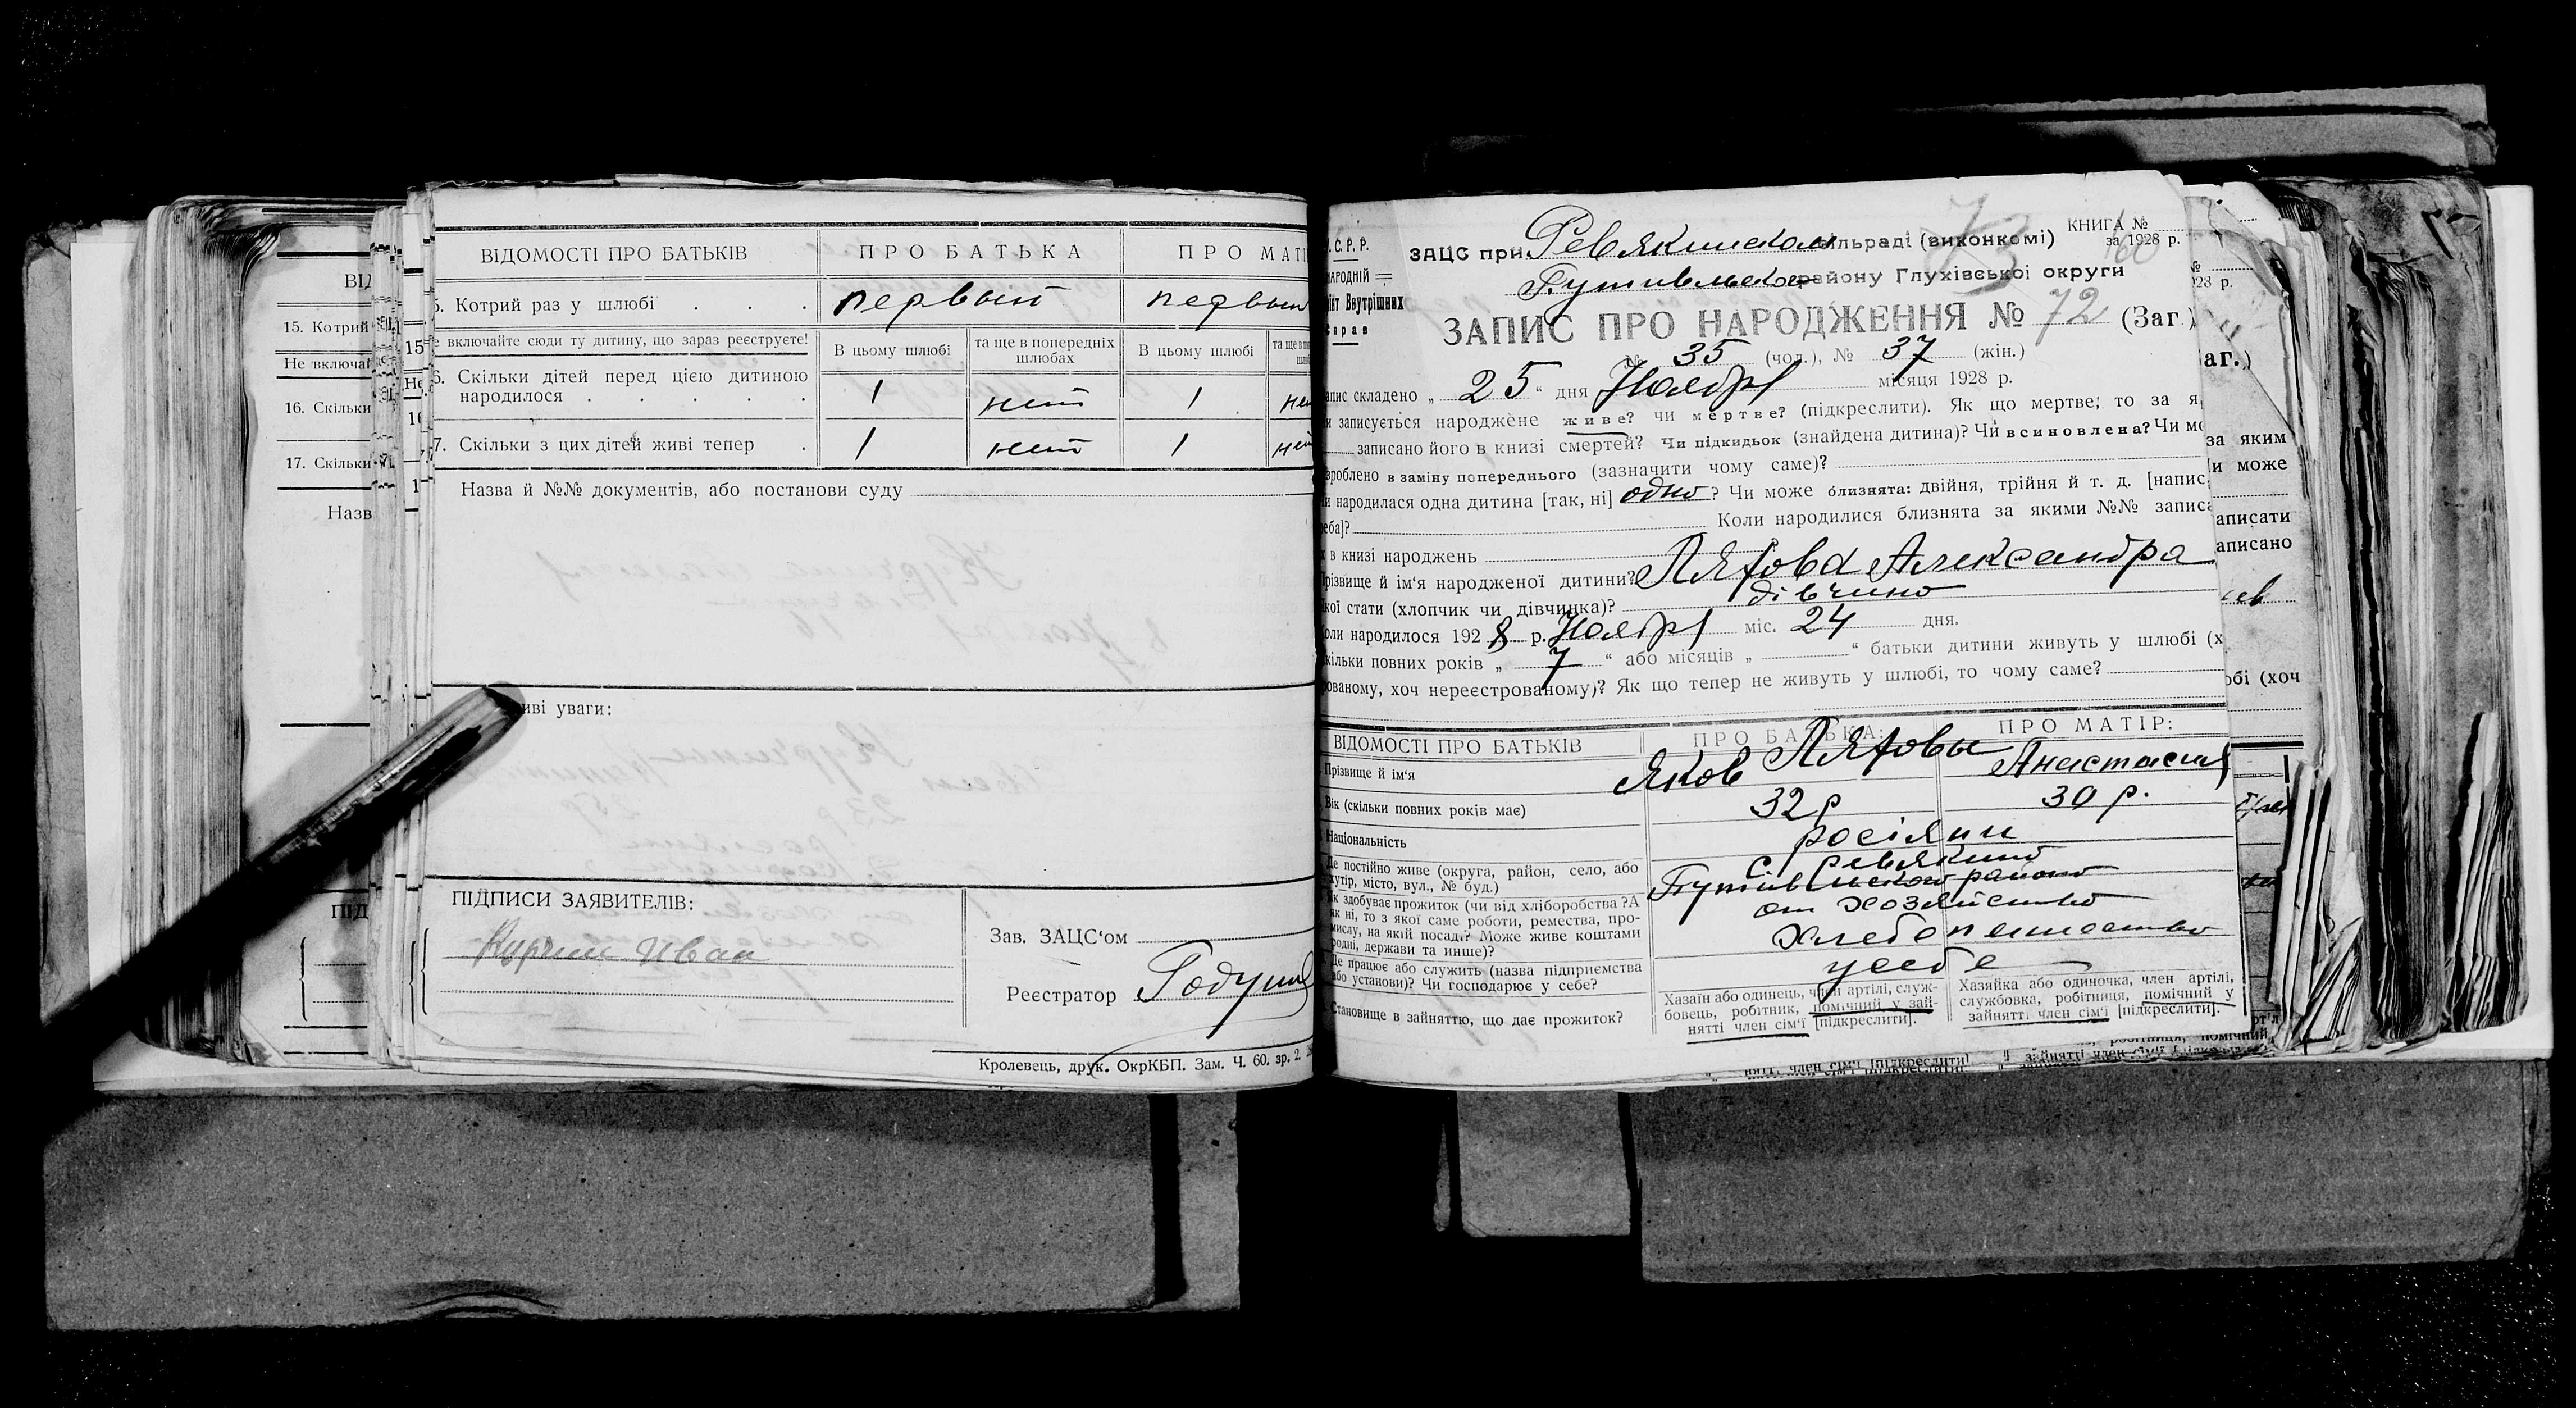 ВІДОМОСТІ ПРО БАТЬКІВ ПРО БАТЬКА ПРО МАТІ
5. Котрий раз у шлюбі . . . первый первый
е включайте сюди ту дитину, що зараз реєструєте! В цьому шлюбі та ще в попередніх шлюбах В цьому шлюбі та ще в
6. Скільки дітей перед цією дитиною
народилося . . . . . 1 нет 1 нет
7. Скільки з цих дітей живі тепер . 1 нет 1 нет
Назва й №№ документів, або постанови суду
иві уваги:
ПІДПИСИ ЗАЯВИТЕЛІВ:
Курчин Иван
Зав. ЗАЦС‘ом
Реєстратор Годуня
Кролевець, друк. ОкрКБП. Зам. Ч. 60. зр. 2.
ВІД
15. Котрий
Не включай
16. Скільки
17. Скільки
Назв
ПІД
С. Р. Р.
НАРОДНІЙ
іят Внутрішних
справ
73
КНИГА №
за 1928 р.
ЗАЦС при Ревякинском сільраді (виконкомі)
Путивльского району Глухівської округи
ЗАПИС ПРО НАРОДЖЕННЯ № 72 (Заг.)
№ 35 (чол.), № 37 (жін.)
апис складено „ 25 “ дня Ноября місяця 1928 р.
и записується народжене живе? чи мертве? (підкреслити). Як що мертве; то за я
записано його в книзі смертей? Чи підкидьок (знайдена дитина)? Чи всиновлена? Чи мо
зроблено в заміну попереднього (зазначити чому саме)?
и народилася одна дитина [так, ні] одно? Чи може близнята: двійня, трійня й т. д. [напис
реба]? Коли народилися близнята за якими №№ записа
х в книзі народжень
Прізвище й ім‘я народженої дитини? Ляхова Александра
кої стати (хлопчик чи дівчинка)? дівчино
Коли народилося 1928 р. Ноября міс. 24 дня.
кільки повних років „ 7 “ або місяців „ “ батьки дитини живуть у шлюбі (х
рованому, хоч нереєстрованому)? Як що тепер не живуть у шлюбі, то чому саме?
ВІДОМОСТІ ПРО БАТЬКІВ ПРО БАТЬКА: ПРО МАТІР:
Прізвище й ім‘я Яков Ляховы Анастасия
Вік (скільки повних років має) 32 р 30 р.
Національність росіяни
Де постійно живе (округа, район, село, або
хутір, місто, вул., № буд.) с. Ревякино
Путівльского району
Як здобуває прожиток (чи від хліборобства? А
як ні, то з якої саме роботи, ремества, про-
мислу, на якій посаді? Може живе коштами
родні, держави та инше)? от хозяйство
Хлебопашество
Де працює або служить (назва підприємства
або установи)? Чи господарює у себе? у себе
Становище в зайняттю, що дає прожиток?
Хазаїн або одинець, член артілі, служ-
бовець, робітник, помічний у зай-
нятті член сім‘ї [підкреслити].
Хазяйка або одиночка, член артілі,
службовка, робітниця, помічний у
зайнятті член сім‘ї [підкреслити].
№
28 р.
аг.)
за яким
и може
аписати
аписано
обі (хоч